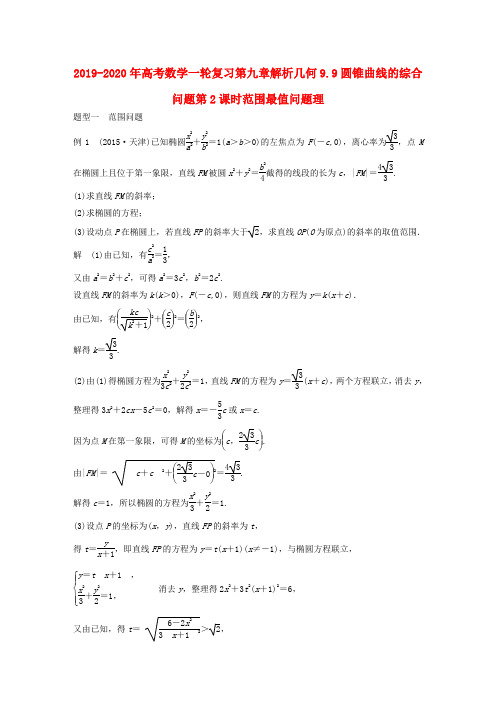 2019-2020年高考数学一轮复习第九章解析几何9.9圆锥曲线的综合
问题第2课时范围最值问题理
题型一 范围问题
例1 (2015·天津)已知椭圆x²/a²+y²/b²=1(a>b>0)的左焦点为F(-c,0),离心率为√3/3,点M
在椭圆上且位于第一象限,直线FM被圆x²+y²=b²/4截得的线段的长为c,|FM|=4√3/3.
(1)求直线FM的斜率;
(2)求椭圆的方程;
(3)设动点P在椭圆上,若直线FP的斜率大于√2,求直线OP(O为原点)的斜率的取值范围.
解 (1)由已知,有c²/a²=1/3,
又由a²=b²+c²,可得a²=3c²,b²=2c².
设直线FM的斜率为k(k>0),F(-c,0),则直线FM的方程为y=k(x+c).
由已知,有(kc/√(k²+1))²+(c/2)²=(b/2)²,
解得k=√3/3.
(2)由(1)得椭圆方程为x²/3c²+y²/2c²=1,直线FM的方程为y=√3/3(x+c),两个方程联立,消去y,
整理得3x²+2cx-5c²=0,解得x=-5/3c或x=c.
因为点M在第一象限,可得M的坐标为(c,2√3/3c).
由|FM|=√(c+c ²+(2√3/3c-0)²)=4√3/3.
解得c=1,所以椭圆的方程为x²/3+y²/2=1.
(3)设点P的坐标为(x,y),直线FP的斜率为t,
得t=y/(x+1),即直线FP的方程为y=t(x+1)(x≠-1),与椭圆方程联立,
{y=t x+1 ,
x²/3+y²/2=1, 消去y,整理得2x²+3t²(x+1)²=6,
又由已知,得t=√(6-2x²/3 x+1 ²)>√2,